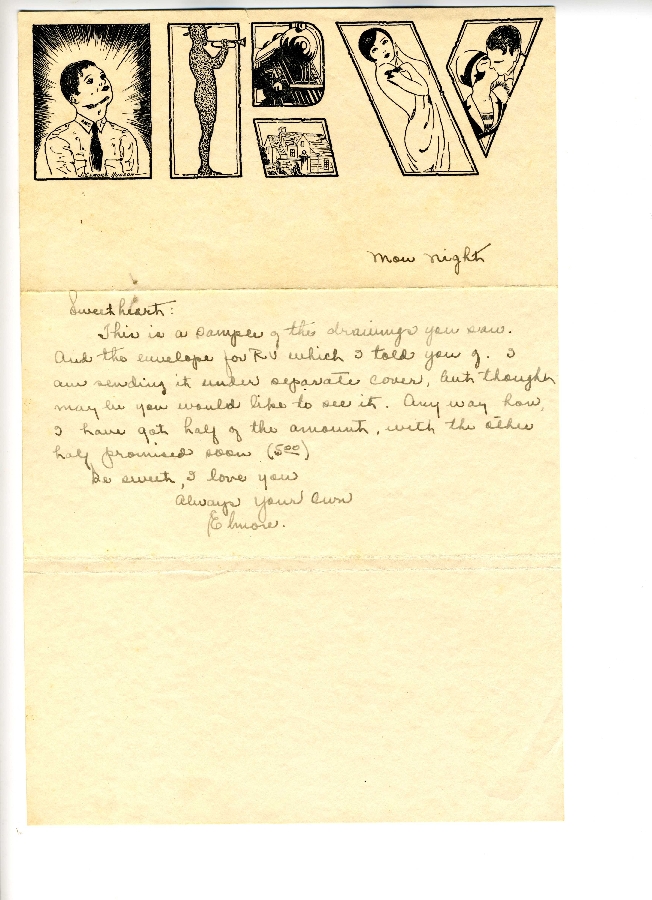 I R V
Mon night
Sweetheart:
This is a sample of the drawings you saw.
And the envelope for R.V which I told you of. I
am sending it under separate cover, but thought
may be you would like to see it. Any way how,
I have got half of the amount, with the other
half promised soon (5.00)
Be sweet, I love you
Always your own
Elmore.